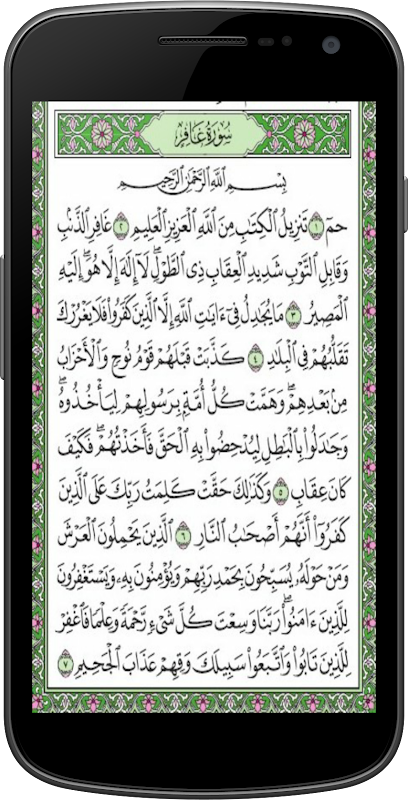 سُورَةُ غَافِرٍ
بِسْمِ اللَّهِ الرَّحْمَٰنِ الرَّحِيمِ
حمٓ ١ تَنزِيلُ الْكِتَٰبِ مِنَ اللَّهِ الْعَزِيزِ الْعَلِيمِ ٢ غَافِرِ الذَّنۢبِ
وَقَابِلِ التَّوْبِ شَدِيدِ الْعِقَابِ ذِى الطَّوْلِ ۖ لَآ إِلَٰهَ إِلَّا هُوَ ۖ إِلَيْهِ
الْمَصِيرُ ٣ مَا يُجَٰدِلُ فِىٓ ءَايَٰتِ اللَّهِ إِلَّا الَّذِينَ كَفَرُوا۟ فَلَا يَغْرُرْكَ
تَقَلُّبُهُمْ فِى الْبِلَٰدِ ٤ كَذَّبَتْ قَبْلَهُمْ قَوْمُ نُوحٍ وَالْأَحْزَابُ
مِنۢ بَعْدِهِمْ ۖ وَهَمَّتْ كُلُّ أُمَّةٍۭ بِرَسُولِهِمْ لِيَأْخُذُوهُ ۖ
وَجَٰدَلُوا۟ بِالْبَٰطِلِ لِيُدْحِضُوا۟ بِهِ الْحَقَّ فَأَخَذْتُهُمْ ۖ فَكَيْفَ
كَانَ عِقَابِ ٥ وَكَذَٰلِكَ حَقَّتْ كَلِمَتُ رَبِّكَ عَلَى الَّذِينَ
كَفَرُوٓا۟ أَنَّهُمْ أَصْحَٰبُ النَّارِ ٦ الَّذِينَ يَحْمِلُونَ الْعَرْشَ
وَمَنْ حَوْلَهُۥ يُسَبِّحُونَ بِحَمْدِ رَبِّهِمْ وَيُؤْمِنُونَ بِهِۦ وَيَسْتَغْفِرُونَ
لِلَّذِينَ ءَامَنُوا۟ ۖ رَبَّنَا وَسِعْتَ كُلَّ شَىْءٍ رَّحْمَةً وَعِلْمًا فَاغْفِرْ
لِلَّذِينَ تَابُوا۟ وَاتَّبَعُوا۟ سَبِيلَكَ وَقِهِمْ عَذَابَ الْجَحِيمِ ٧